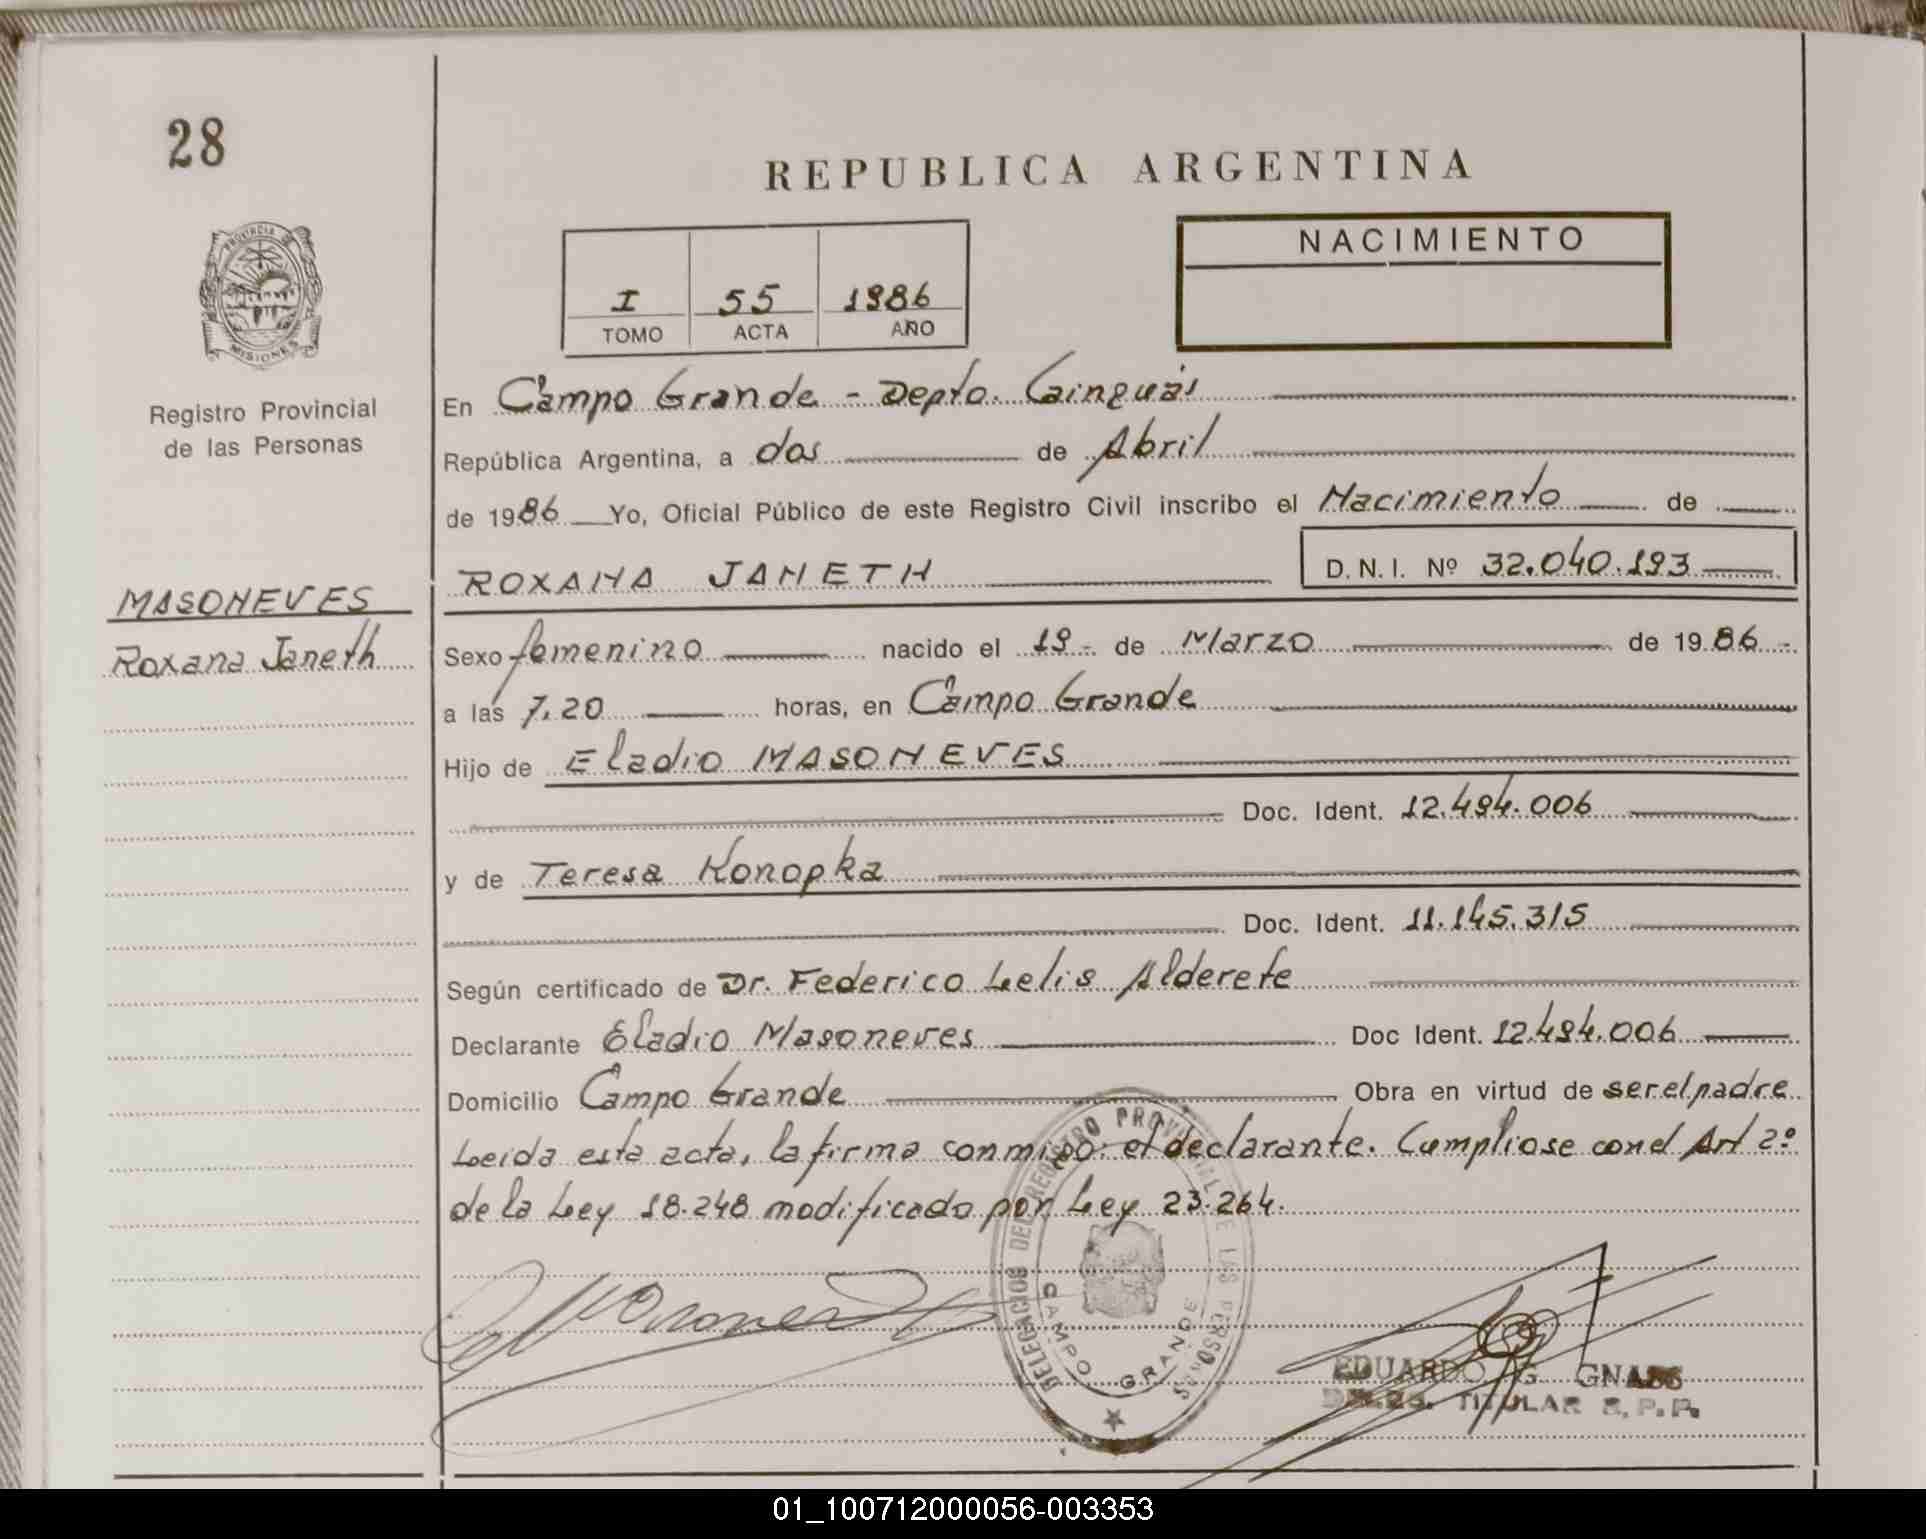 28
REPUBLICA ARGENTINA
PROVINCIA DE
MISIONES
Registro Provincial
de las Personas
I 55 1986
TOMO ACTA AÑO
NACIMIENTO
En Campo Grande - Depto. Cainguás
República Argentina, a dos de Abril
de 1986 Yo, Oficial Público de este Registro Civil inscribo el Nacimiento de
ROXANA JANETH D.N.I. Nº 32.040.193
MASONEVES
Roxana Janeth
Sexo femenino nacido el 19- de Marzo de 1986-
a las 7,20 horas, en Campo Grande
Hijo de Eladio MASONEVES
Doc. Ident. 12.494.006
y de Teresa Konopka
Doc. Ident. 11.145.315
Según certificado de Dr. Federico Lelis Alderete
Declarante Eladio Masoneves Doc Ident. 12.494.006
Domicilio Campo Grande Obra en virtud de ser el padre
Leida esta acta, la firma conmigo: el declarante. Cumpliose con el Art 2º
de la Ley 18.248 modificado por Ley 23.264.
DELEGACION DEL REGISTRO PROVINCIAL DE LAS PERSONAS
CAMPO GRANDE
EDUARDO G. GNASS
TITULAR R.P.P.
01_100712000056-003353